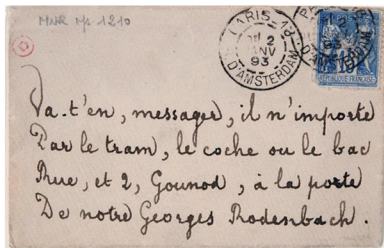 MNR Ms 1210
PARIS-18
2
JANV
93
D'AMSTERDAM
2
93
D'AMSTERDAM
15
RÉPUBLIQUE FRANÇAISE
Va-t'en, messager, il n'importe
Par le tram, le coche ou le bac
Rue, et 2, Gounod, à la porte
De notre Georges Rodenbach.